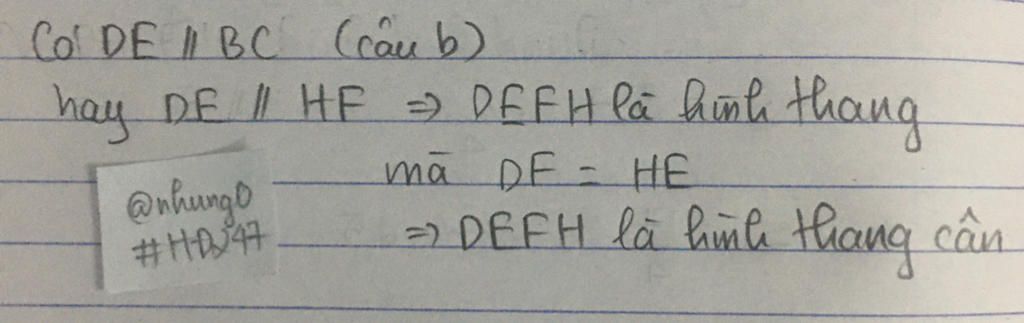 Có DE // BC (câu b)
hay DE // HF => DEFH là hình thang
mà DF = HE
=> DEFH là hình thang cân
@nhung0